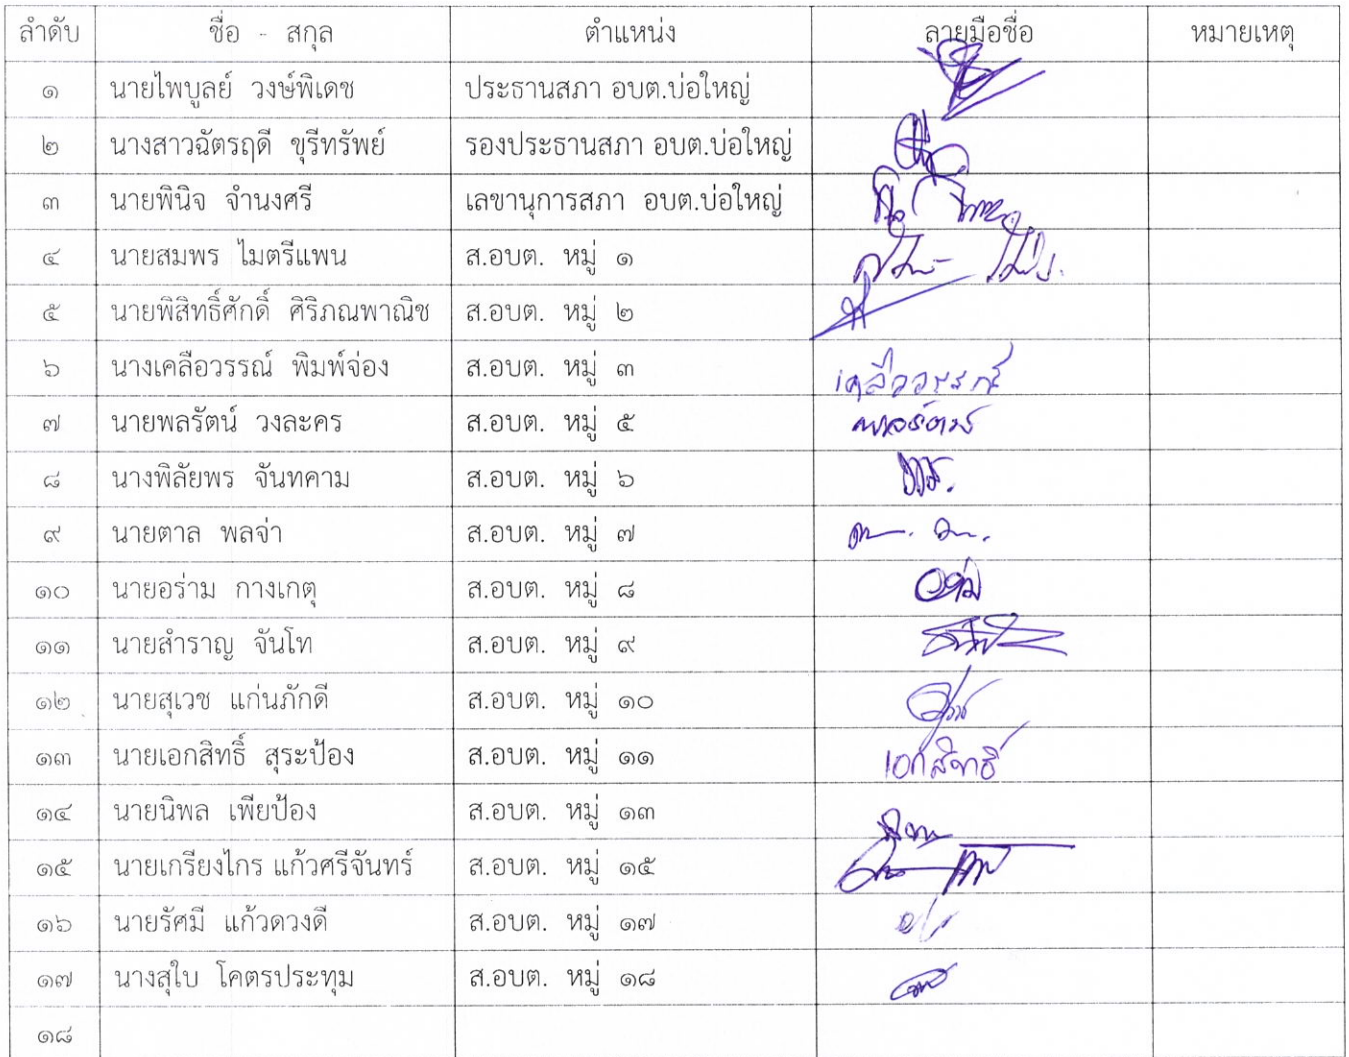 ลำดับ ชื่อ - สกุล ตำแหน่ง ลายมือชื่อ หมายเหตุ
๑ นายไพบูลย์ วงษ์พิเดช ประธานสภา อบต.บ่อใหญ่
๒ นางสาวฉัตรฤดี ขุรีทรัพย์ รองประธานสภา อบต.บ่อใหญ่
๓ นายพินิจ จำนงศรี เลขานุการสภา อบต.บ่อใหญ่
๔ นายสมพร ไมตรีแพน ส.อบต. หมู่ ๑
๕ นายพิสิทธิ์ศักดิ์ ศิริภณพาณิช ส.อบต. หมู่ ๒
๖ นางเคลือวรรณ์ พิมพ์จ่อง ส.อบต. หมู่ ๓ เคลือวรรณ์
๗ นายพลรัตน์ วงละคร ส.อบต. หมู่ ๕ พลรัตน์
๘ นางพิลัยพร จันทคาม ส.อบต. หมู่ ๖
๙ นายตาล พลจ่า ส.อบต. หมู่ ๗
๑๐ นายอร่าม กางเกตุ ส.อบต. หมู่ ๘
๑๑ นายสำราญ จันโท ส.อบต. หมู่ ๙
๑๒ นายสุเวช แก่นภักดี ส.อบต. หมู่ ๑๐
๑๓ นายเอกสิทธิ์ สุระป้อง ส.อบต. หมู่ ๑๑ เอกสิทธิ์
๑๔ นายนิพล เพียป้อง ส.อบต. หมู่ ๑๓
๑๕ นายเกรียงไกร แก้วศรีจันทร์ ส.อบต. หมู่ ๑๕
๑๖ นายรัศมี แก้วดวงดี ส.อบต. หมู่ ๑๗
๑๗ นางสุใบ โคตรประทุม ส.อบต. หมู่ ๑๘
๑๘